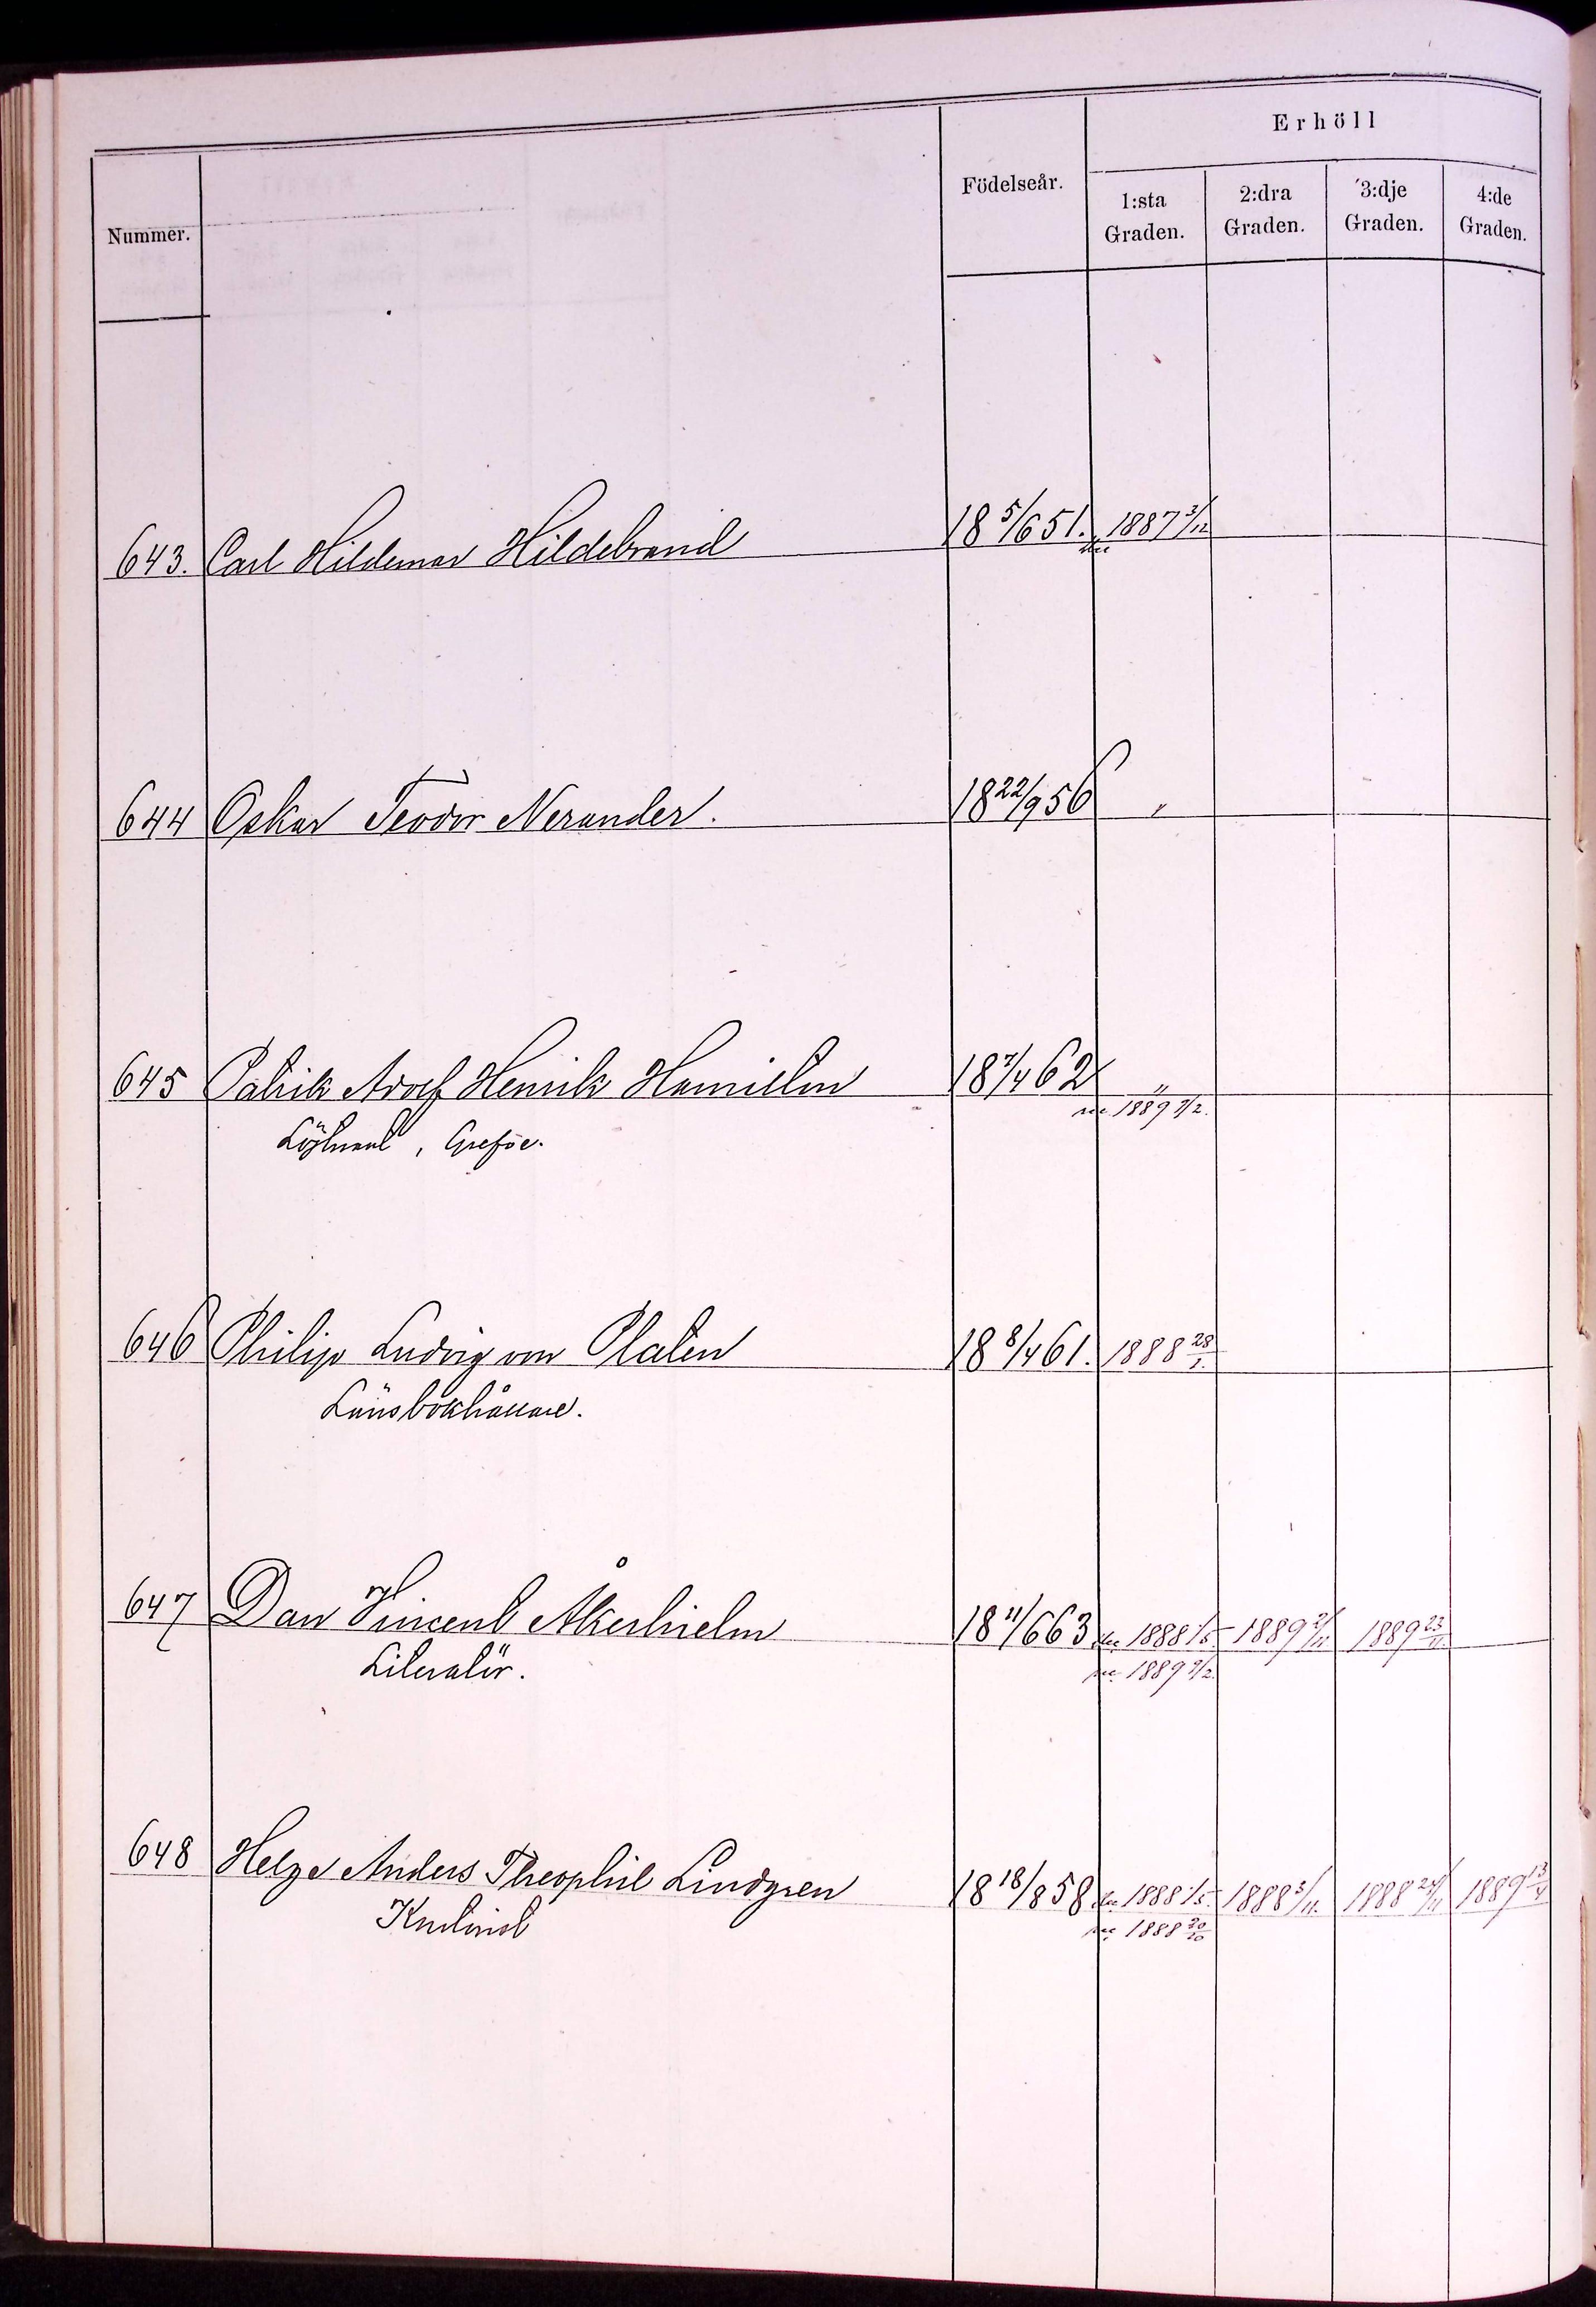 Erhöll
Nummer. Födelseår. 1:sta Graden. 2:dra Graden. 3:dje Graden. 4:de Graden.
643. Carl Hildemar Hildebrand 18 5/6 51. 1887 3/12
644 Oskar Teodor Nerander. 18 22/9 56 "
645 Patrik Adolf Henrik Hamilton 18 7/4 62 "
Löjtnant, Grefve. 1889 9/2.
646 Philip Ludvig von Platen 18 8/4 61. 1888 28/1.
Länsbokhållare.
647 Dan Vincent Åkerhielm 18 11/6 63 1888 1/5 1889 2/11 1889 23/11.
Literatör. 1889 9/2.
648 Helge Anders Theophil Lindgren 18 18/8 58. 1888 1/5. 1888 3/11. 1888 24/11 1889 13/4
1888 20/10